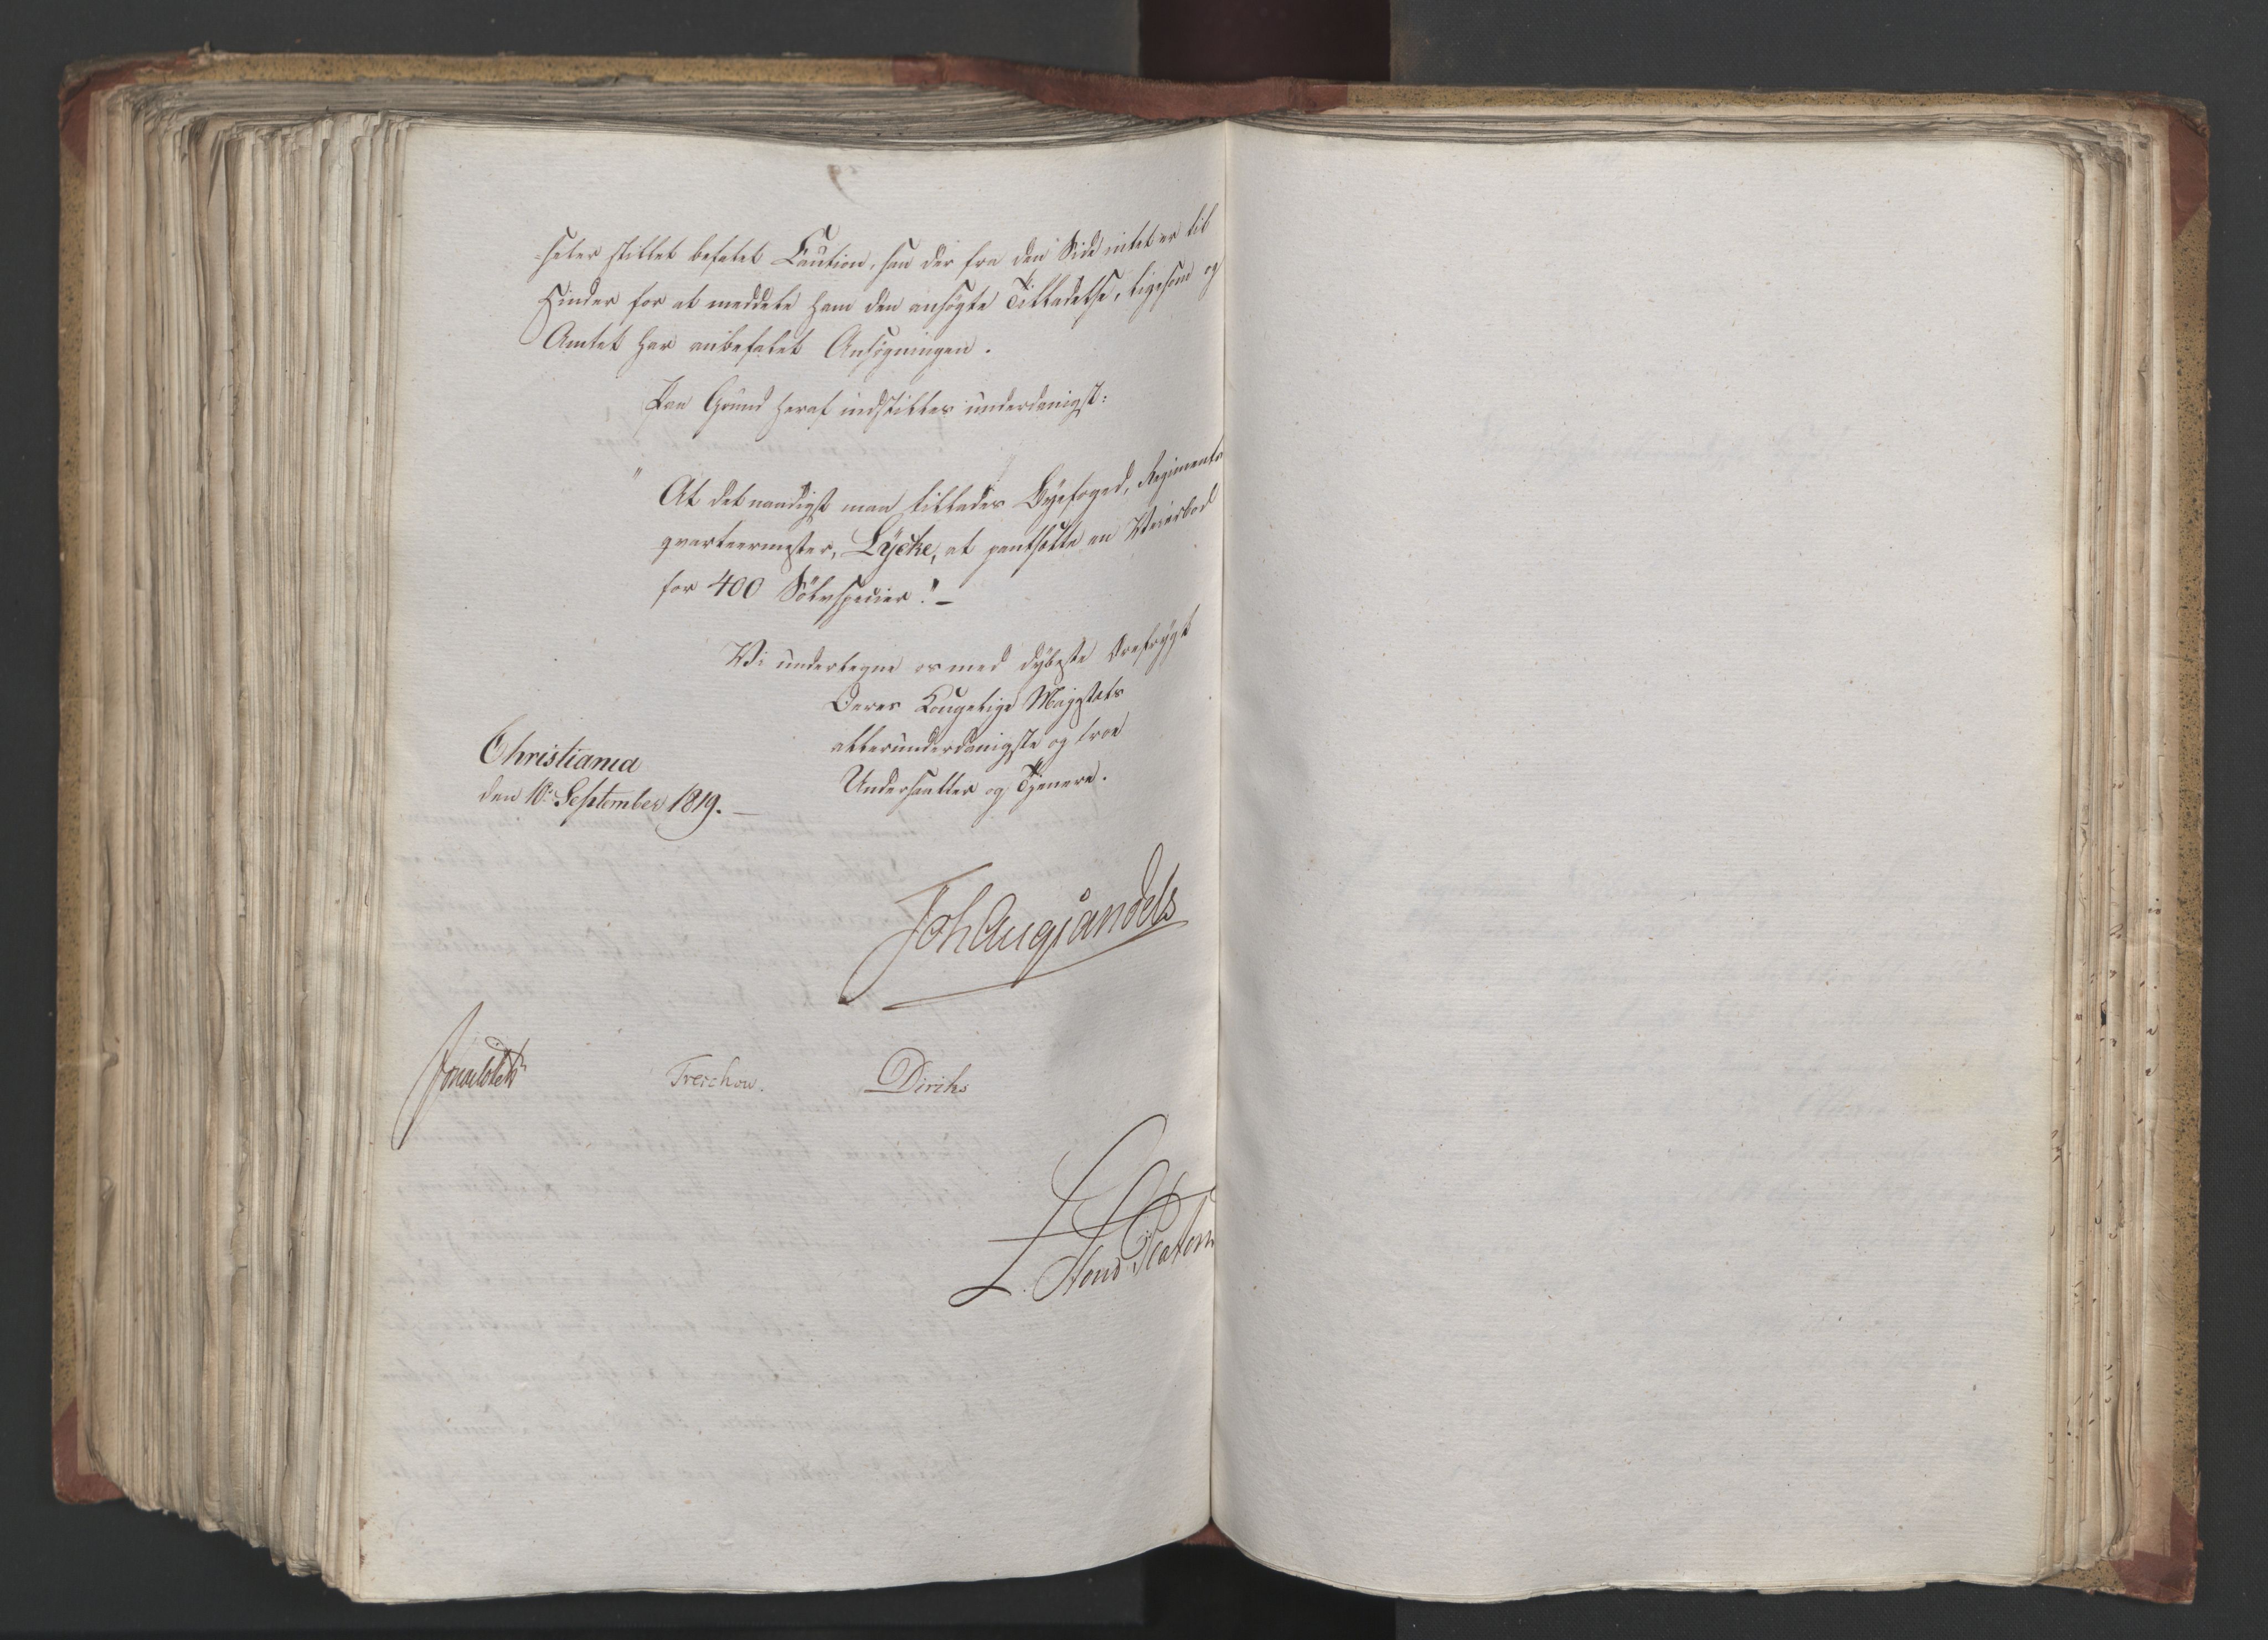 -heler stillet befalet Caution, saa der fra den Side intet er til
Hinder for at meddele ham den ansøgte Tilladelse, ligesom og
Amtet har anbefalet Ansøgningen.
Paa Grund heraf indstilles underdanigst:
"At det naadigst maa tillades Byefoged, Regiments
qvarteermester, Lycke, at pantsætte en
for 400 Sölvspecier." –
Vi undertegne os med dybeste Ærefrygt
Deres Kongelige Majestæts
allerunderdanigste og troe
Undersaatter og Tjenere.
Christiania
den 10de September 1819. –
Joh Aug Sandels
Treschow. Diriks